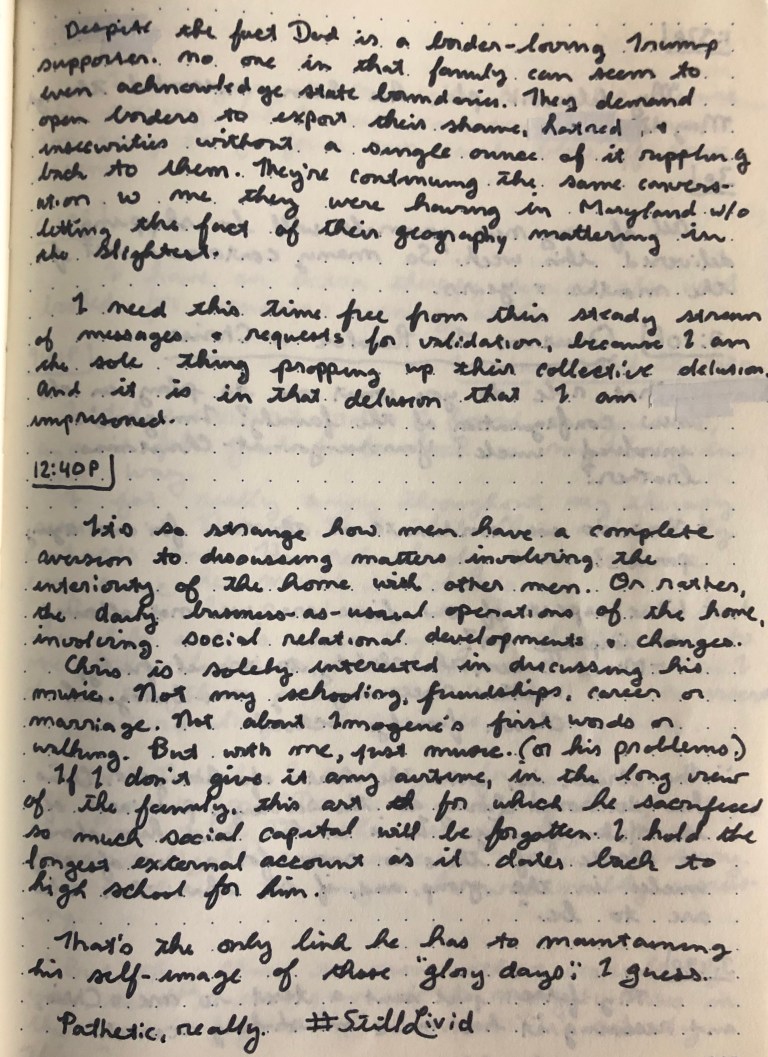 Despite the fact Dad is a border-loving Trump
supporter. No one in that family can seem to
even acknowledge state boundaries. They demand
open borders to export their shame, hatred, +
insecurities without a single ounce of it rippling
back to them. They're continuing the same convers-
ation w me they were having in Maryland w/o
letting the fact of their geography mattering in
the slightest.
I need this time free from their steady stream
of messages + requests for validation, because I am
the sole thing propping up their collective delusion.
And it is in that delusion that I am
imprisoned.
12:40P
It's so strange how men have a complete
aversion to discussing matters involving the
interiority of the home with other men. Or rather,
the daily business-as-usual operations of the home,
involving social relational developments + changes.
Chris is solely interested in discussing his
music. Not my schooling, friendships, career or
marriage. Not about Imogene's first words or
walking. But with me, just music. (or his problems)
If I don't give it any airtime, in the long view
of the family, this art for which he sacrificed
so much social capital will be forgotten. I hold the
longest external account as it dates back to
high school for him.
That's the only link he has to maintaining
his self-image of those "glory days", I guess.
Pathetic, really. #StillLivid